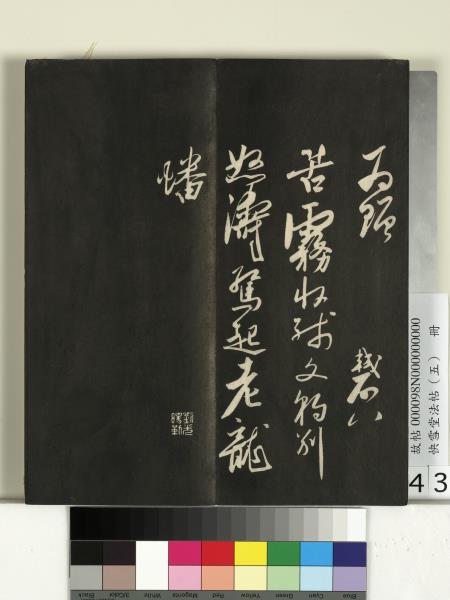 苦霧收殘文豹別
怒濤驚起老龍
蟠
故帖 000098N000000000
快雪堂法帖（五） 冊
4 3
Blue
Cyan
Green
Yellow
Red
Magenta
White
3/Color
Black